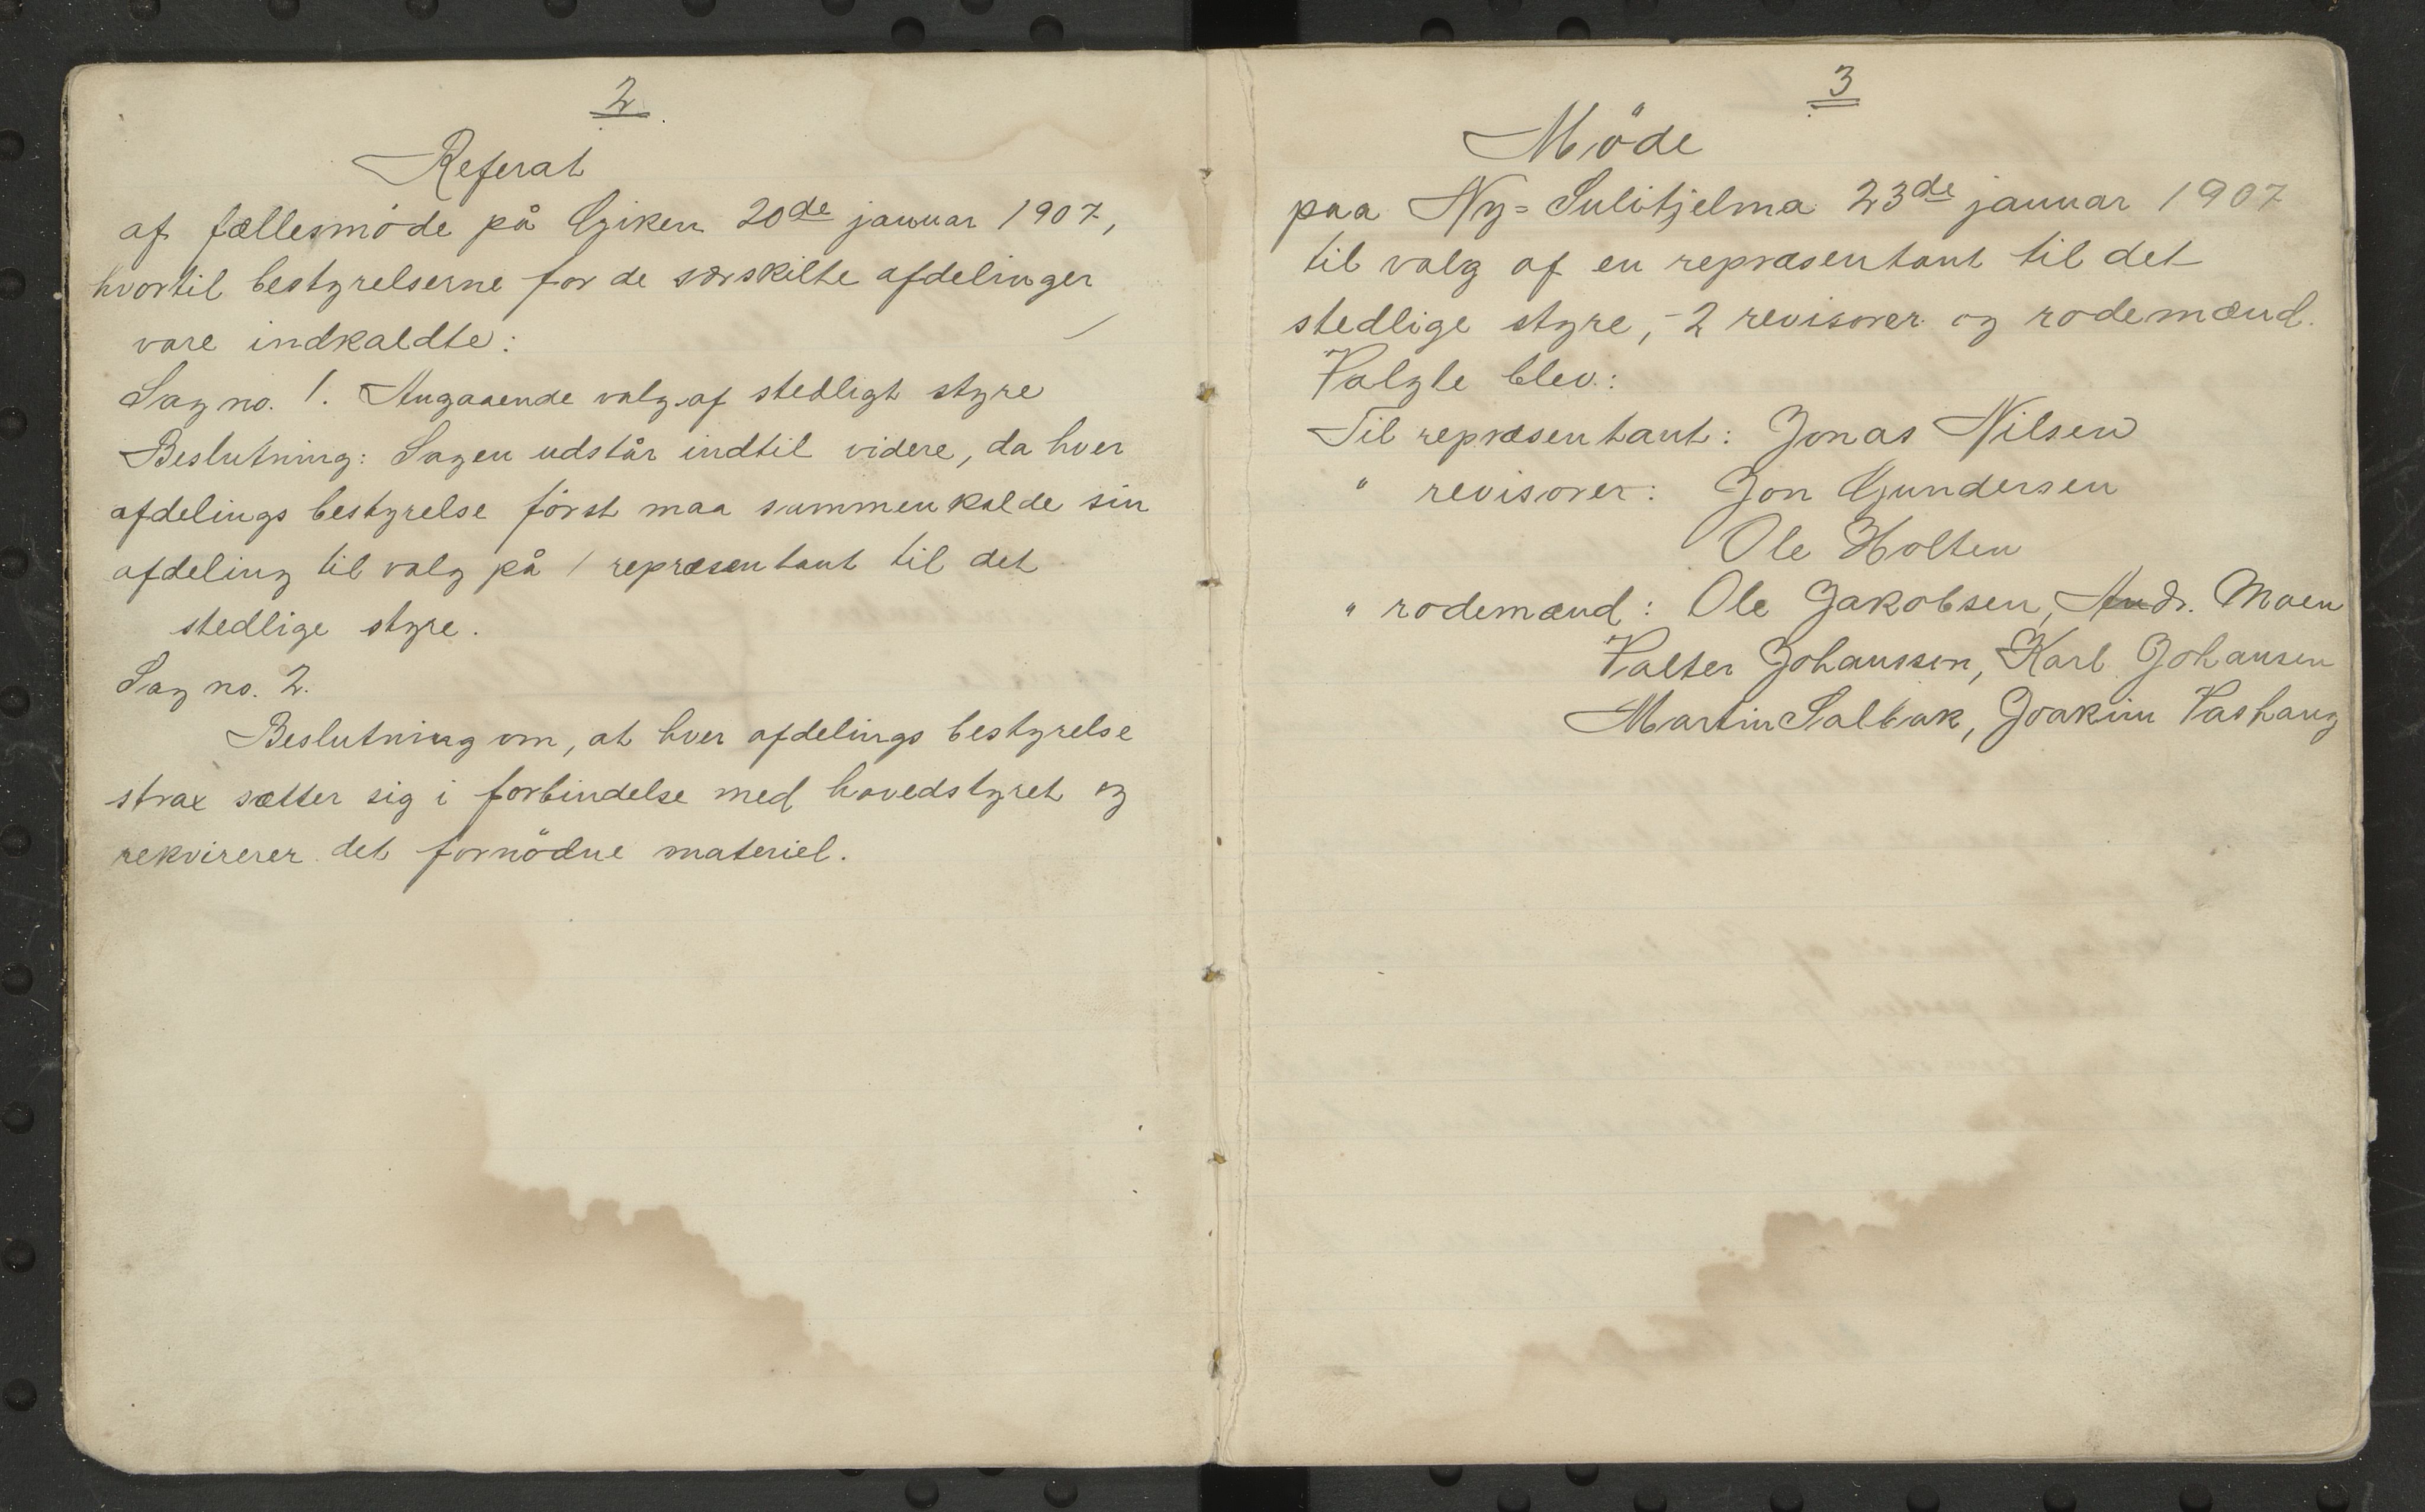 2
Referat
af fællesmöde på Giken 20de januar 1907,
hvortil bestyrelserne for de særskilte afdelinger
vare indkaldte:
Sag no. 1. Angaaende valg af stedligt styre
Beslutning: Sagen udstår indtil videre, da hver
afdelings bestyrelse först maa sammenkalde sin
afdeling til valg på 1 repræsentant til det
stedlige styre.
Sag no. 2.
Beslutning om, at hver afdelings bestyrelse
strax sætter sig i forbindelse med hovedstyret og
rekvirerer det fornödne materiel.
3
Möde
paa Ny=Sulitjelma 23de januar 1907
til valg af en repræsentant til det
stedlige styre, - 2 revisorer og rodemænd.
Valgte blev:
Til repræsentant: Jonas Nilsen
" revisorer: Jon Gundersen
Ole Holten
" rodemænd: Ole Jakobsen, Andr. Moen
Valter Johanssen, Karl Johansen
Martin Salbak, Joakim Vashaug